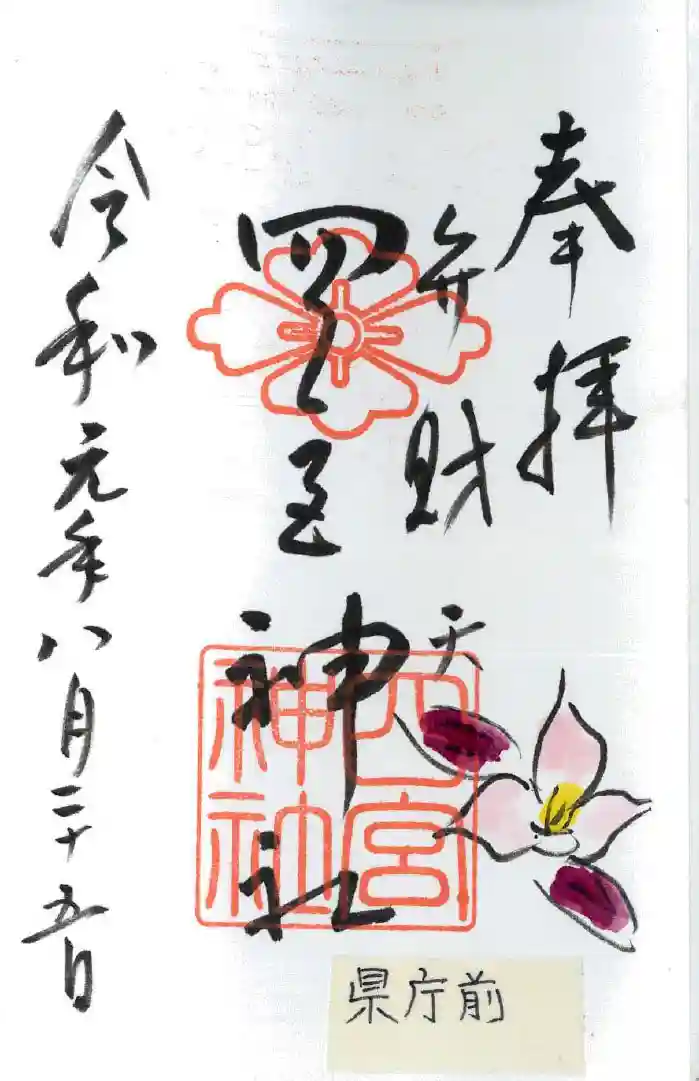 奉拝
弁財天
四宮神社
四宮神社
令和元年八月二十五日
県庁前